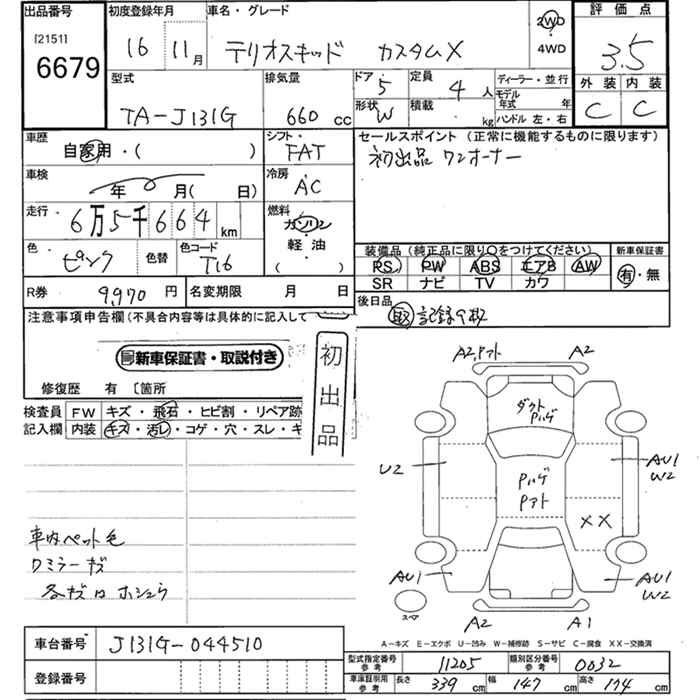 出品番号
[2151]
6679
初度登録年月
16 11月
車名・グレード
テリオスキッド カスタムX
2WD
4WD
評価点
3.5
外装 内装
C C
型式
TA-J131G
排気量
660 cc
ドア 5
定員 4 人
形状 W
積載 kg
ディーラー・並行
モデル年式 年
ハンドル 左・右
車歴
自家用・( )
シフト
FAT
セールスポイント (正常に機能するものに限ります)
初出品 ワンオーナー
車検
年 月( 日)
冷房
AC
走行
6万5千664 km
燃料
ガソリン
軽油
( )
色
ピンク
色替
色コード
T16
装備品(純正品に限り○をつけてください)
PS PW ABS エアB AW
SR ナビ TV カワ
新車保証書
有・無
R券 9,970 円
名変期限 月 日
後日品
取 記録9枚
注意事項申告欄(不具合内容等は具体的に記入して
新車保証書・取説付き
初出品
修復歴 有 〔箇所
検査員記入欄
FW キズ・飛石・ヒビ割・リペア跡
内装 キズ・汚レ・コゲ・穴・スレ・キ
車内ペット色
ワミラーキズ
各キズ
A2.Pアト A2
ダクト
Pハゲ
U2
Pハゲ
Pアト
AU1
W2
XX
AU1
AU1
W2
スペア
A2 A1
A-キズ E-エクボ U-凹み W-補修跡 S-サビ C-腐食 XX-交換済
車台番号 J131G-044510
登録番号
型式指定番号参考 11205
類別区分番号参考 0032
車庫証明用参考 長さ 339 cm 幅 147 cm 高さ 174 cm